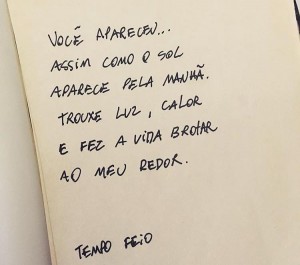 VOCÊ APARECEU...
ASSIM COMO O SOL
APARECE PELA MANHÃ.
TROUXE LUZ, CALOR
E FEZ A VIDA BROTAR
AO MEU REDOR.
TEMPO FEIO